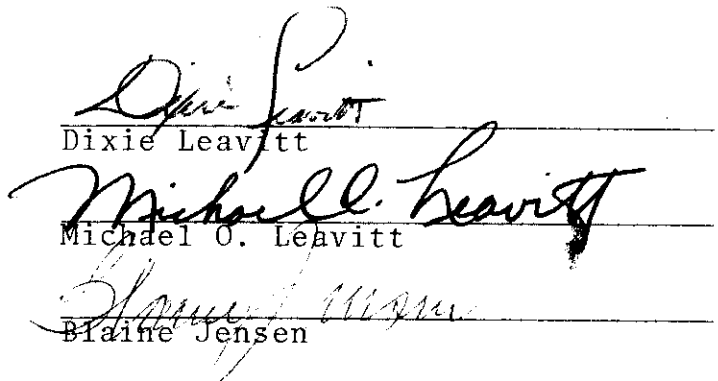 Dixie Leavitt
Dixie Leavitt
Michael O. Leavitt
Michael O. Leavitt
Blaine Jensen